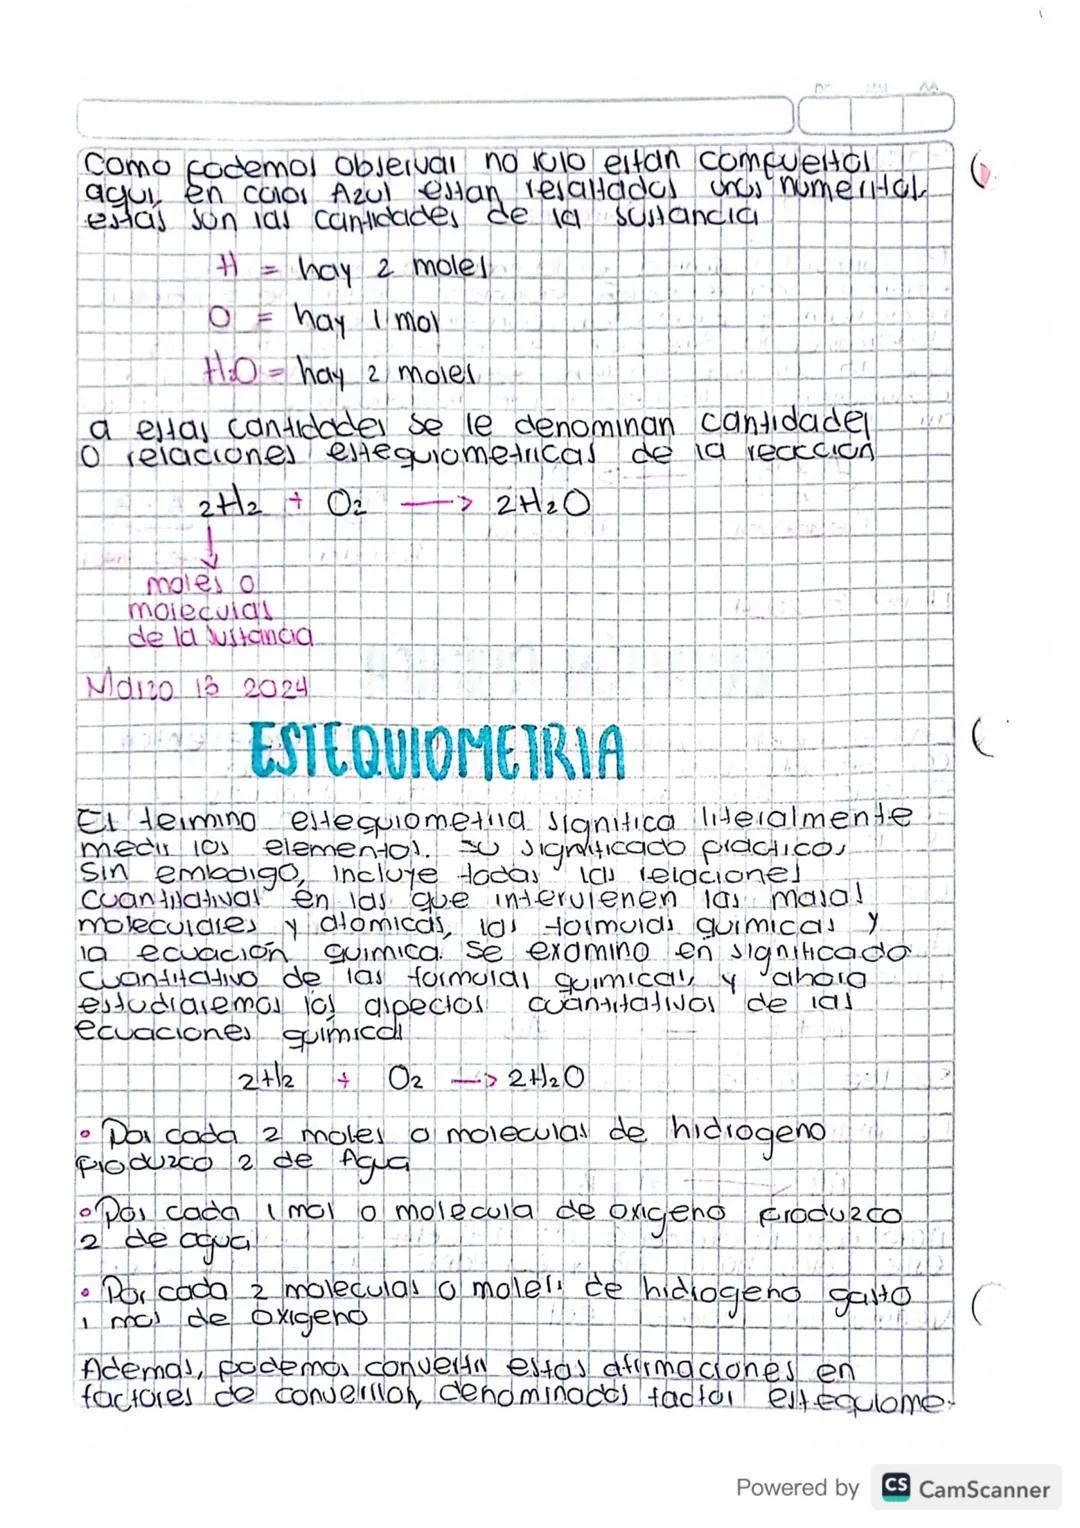 Como podemos observar no solo estan compuestos
aqui, en color Azul estan resaltados unos numeritos
estas son las cantidades de la sustancia
H = hay 2 moles
O = hay 1 mol
H2O = hay 2 moles
a estas cantidades se le denominan cantidades
o relaciones estequiometricas de la reaccion
2H2 + O2 → 2H2O
moles o
moleculas
de la sustancia
Marzo 13 2024
ESTEQUIOMETRIA
El termino estequiometria significa literalmente
medir los elementos. su significado practico,
sin embargo, incluye todas las relaciones
cuantitativas en las que intervienen las masas
moleculares y atomicas, las formulas quimicas y
la ecuación quimica. se examino en significado
cuantitativo de las formulas quimicas, y ahora
estudiaremos los aspectos cuantitativos de las
ecuaciones quimicas
2H2 + O2 → 2H2O
• Por cada 2 moles o moleculas de hidrogeno
produzco 2 de Agua
• Por cada 1 mol o molecula de oxigeno produzco
2 de agua
• Por cada 2 moleculas o moles de hidrogeno gasto
1 mol de oxigeno
Ademas, podemos convertir estas afirmaciones en
factores de conversion, denominados factor estequiome-
Powered by CS CamScanner